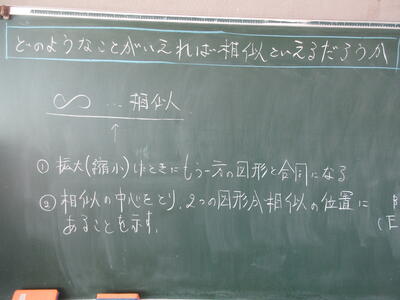 どのようなことがいえれば相似といえるだろうか
∽ … 相似
↑
① 拡大(縮小)したときにもう一方の図形と合同になる
② 相似の中心をとり、2つの図形が相似の位置に
あることを示す。
(E